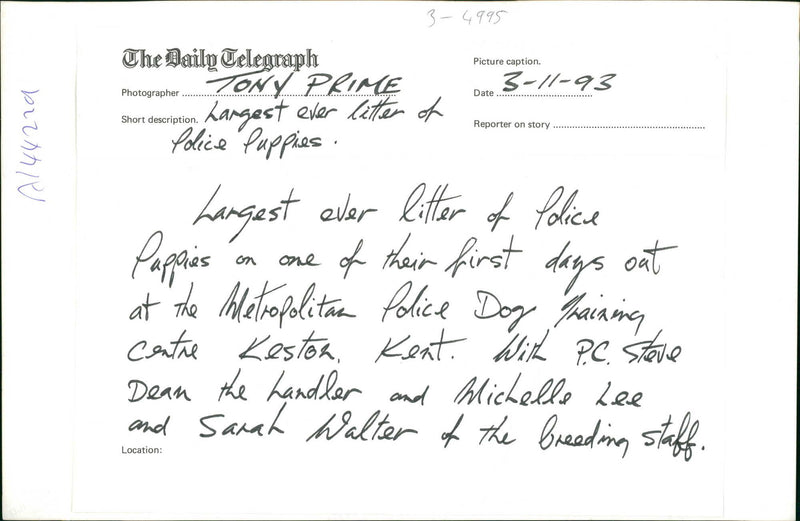 3-4995
The Daily Telegraph
Picture caption.
Photographer TONY PRIME
Date 3-11-93
Short description. Largest ever litter of
Police Puppies.
Reporter on story
Largest ever litter of Police
Puppies on one of their first days out
at the Metropolitan Police Dog Training
Centre Keston, Kent. With P.C. Steve
Dean the handler and Michelle Lee
and Sarah Walter of the breeding staff.
Location: